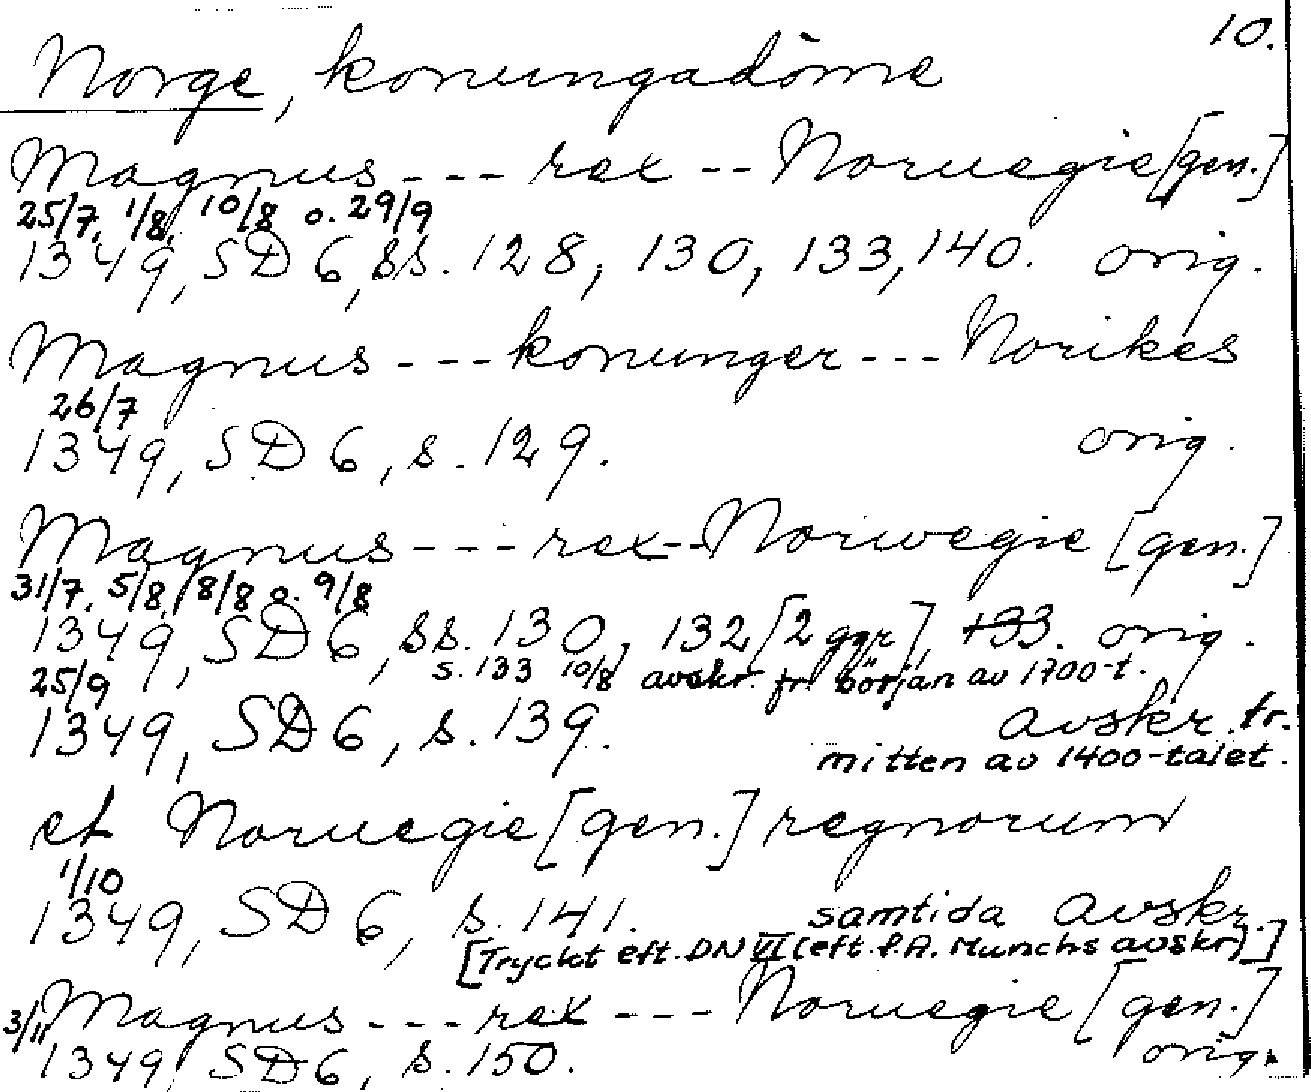 10.
Norge, konungadöme
Magnus --- rex -- Noruegie [gen.]
25/7, 1/8, 10/8 o. 29/9
1349, SD 6, ss. 128, 130, 133, 140. orig.
Magnus --- konunger --- Norikes
26/7
1349, SD 6, s. 129. orig.
Magnus --- rex -- Norwegie [gen.]
31/7, 5/8, 8/8 o. 9/8
1349, SD 6, ss. 130, 132 [2 ggr], 133. orig.
s. 133 10/8 avskr. fr. början av 1700-t.
25/9
1349, SD 6, s. 139. avskr. fr.
mitten av 1400-talet.
et Noruegie [gen.] regnorum
1/10
1349, SD 6, s. 141. samtida avskr.
[Tryckt eft. DN VI (eft. P.A. Munchs avskr.)]
Magnus --- rex --- Noruegie [gen.]
3/11
1349, SD 6, s. 150. orig.